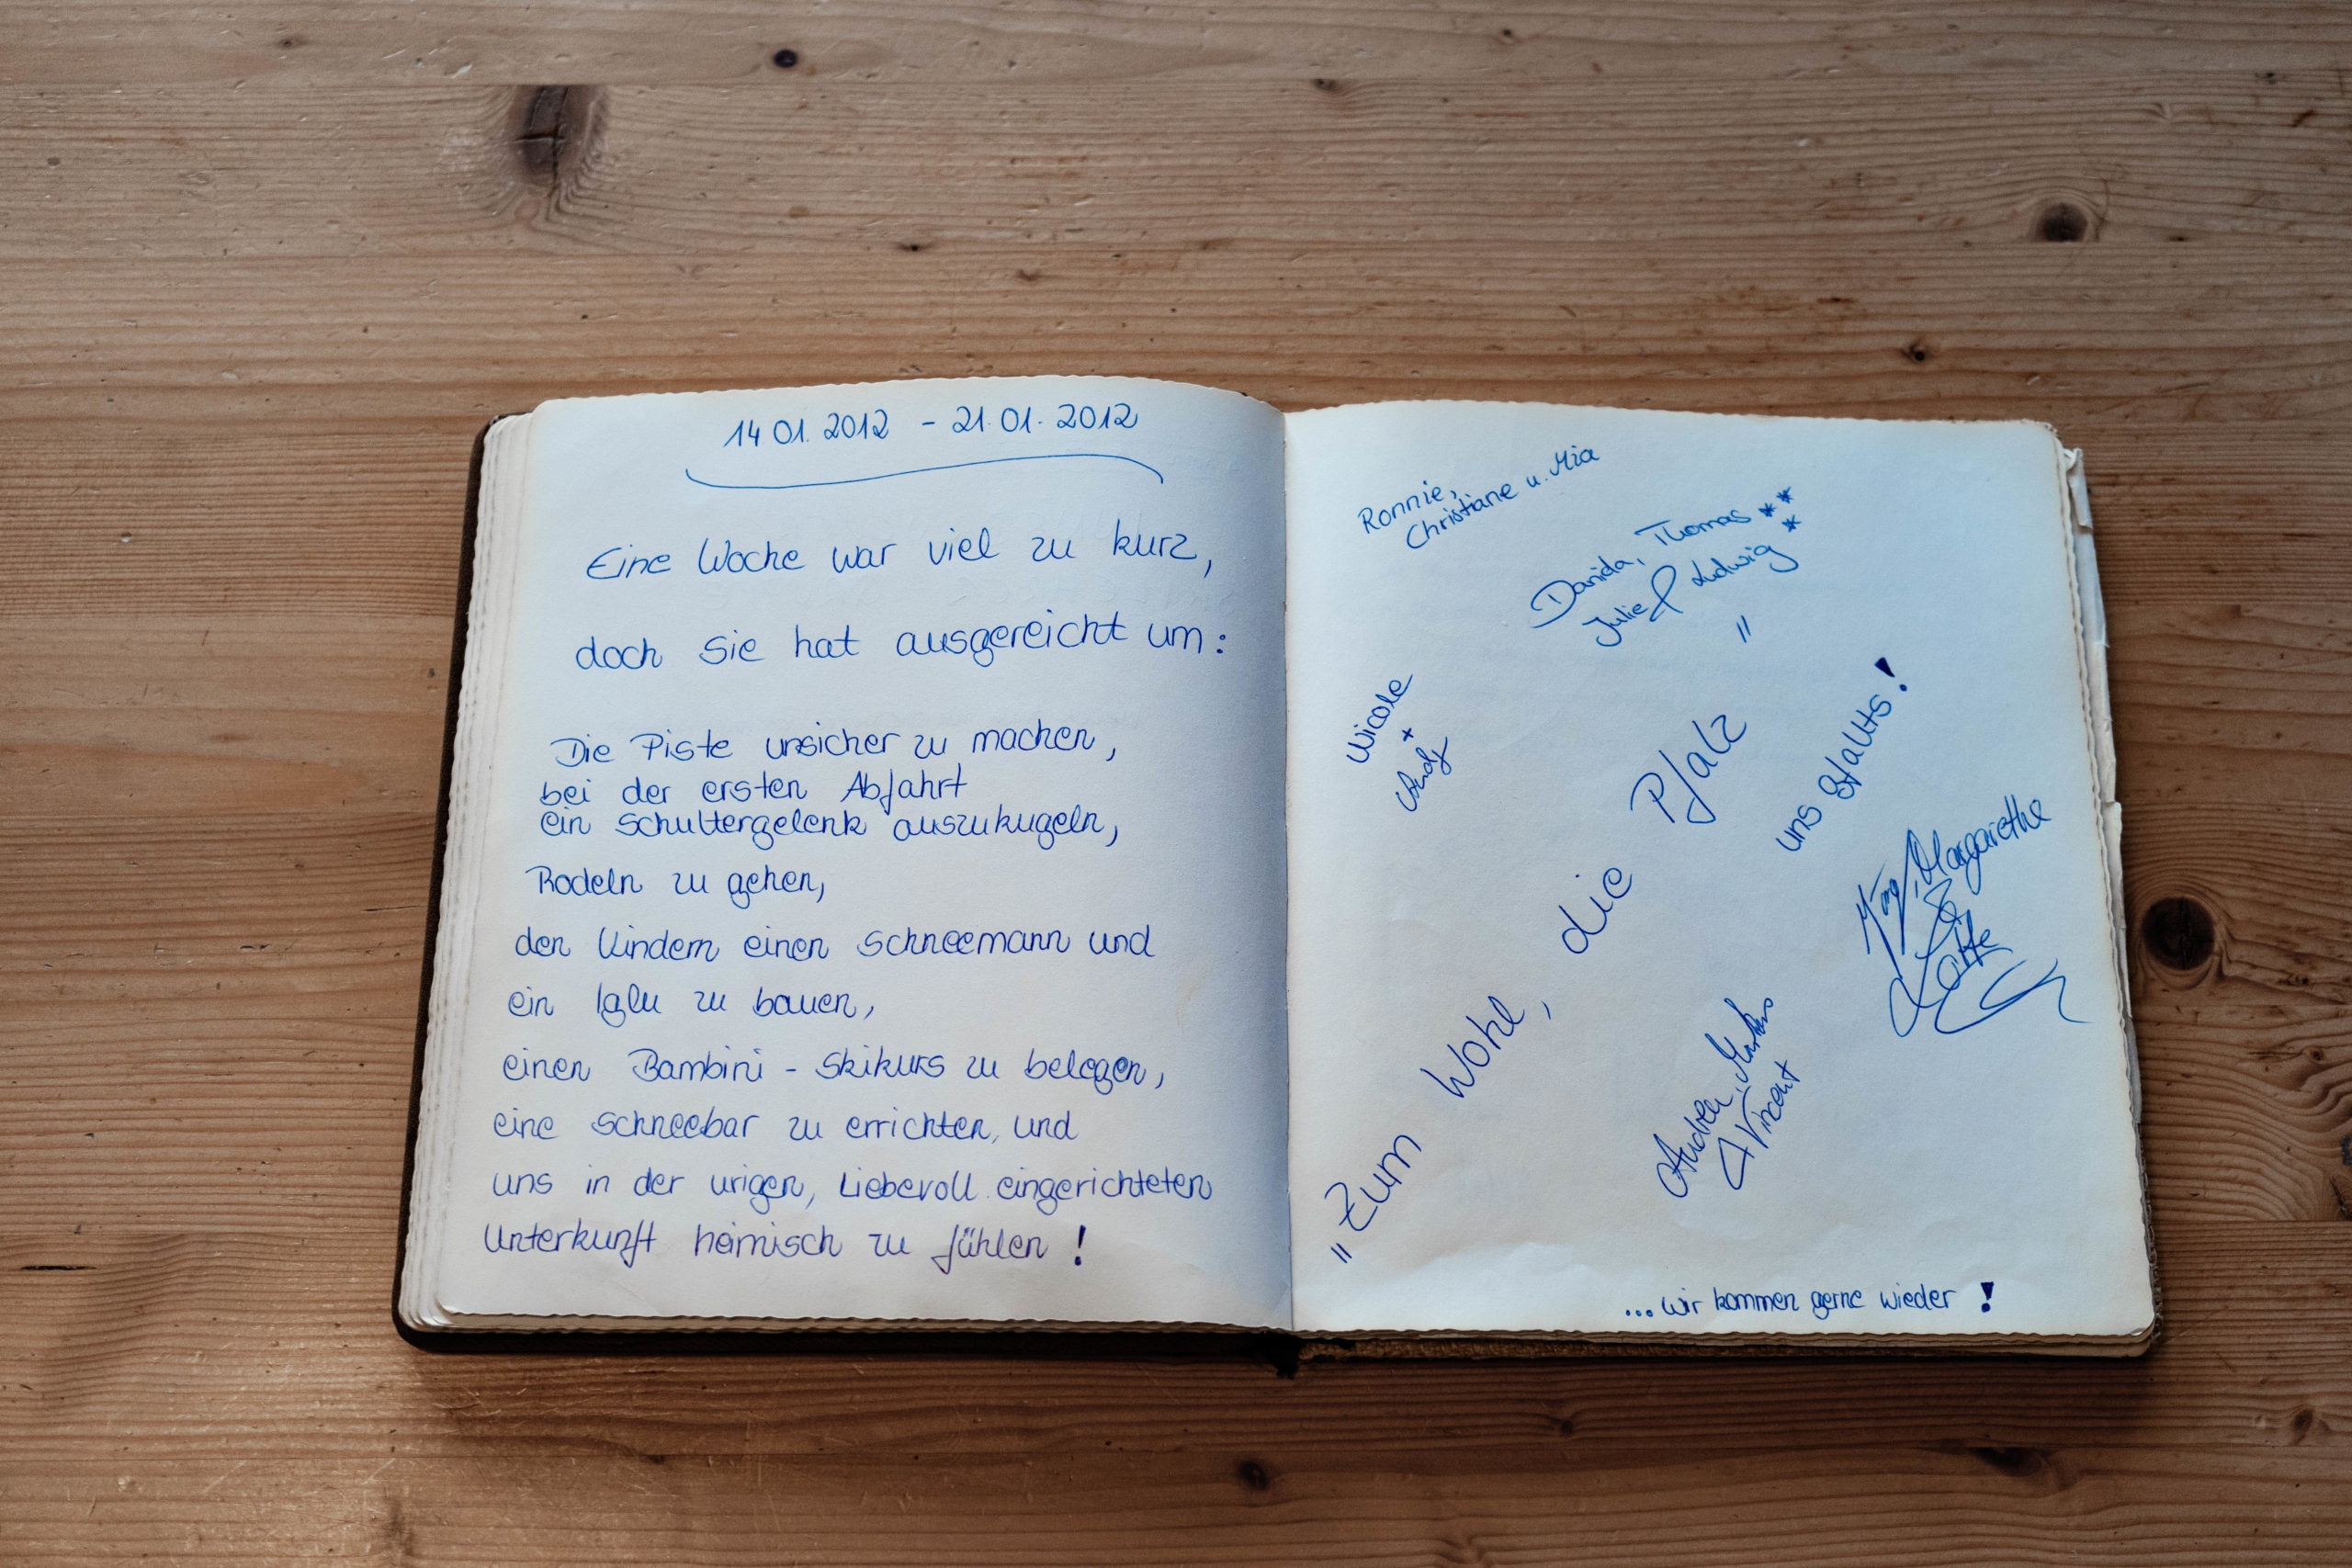 14 01. 2012 - 21.01.2012
Eine Woche war viel zu kurz,
doch sie hat ausgereicht um:
Die Piste unsicher zu machen,
bei der ersten Abfahrt
ein Schultergelenk auszukugeln,
Rodeln zu gehen,
den Kindern einen Schneemann und
ein Iglu zu bauen,
einen Bambini - Skikurs zu belegen,
eine Schneebar zu errichten, und
uns in der urigen, Liebevoll eingerichteten
Unterkunft heimisch zu fühlen !
Ronnie,
Christiane u. Mia
Thomas ***
Julie & Ludwig
Nicole
+
Andy
„Zum Wohl, die Pfalz"
uns Stallts!
Margarethe
&
Lotte
Andrea,
& Vincent
...wir kommen gerne wieder !